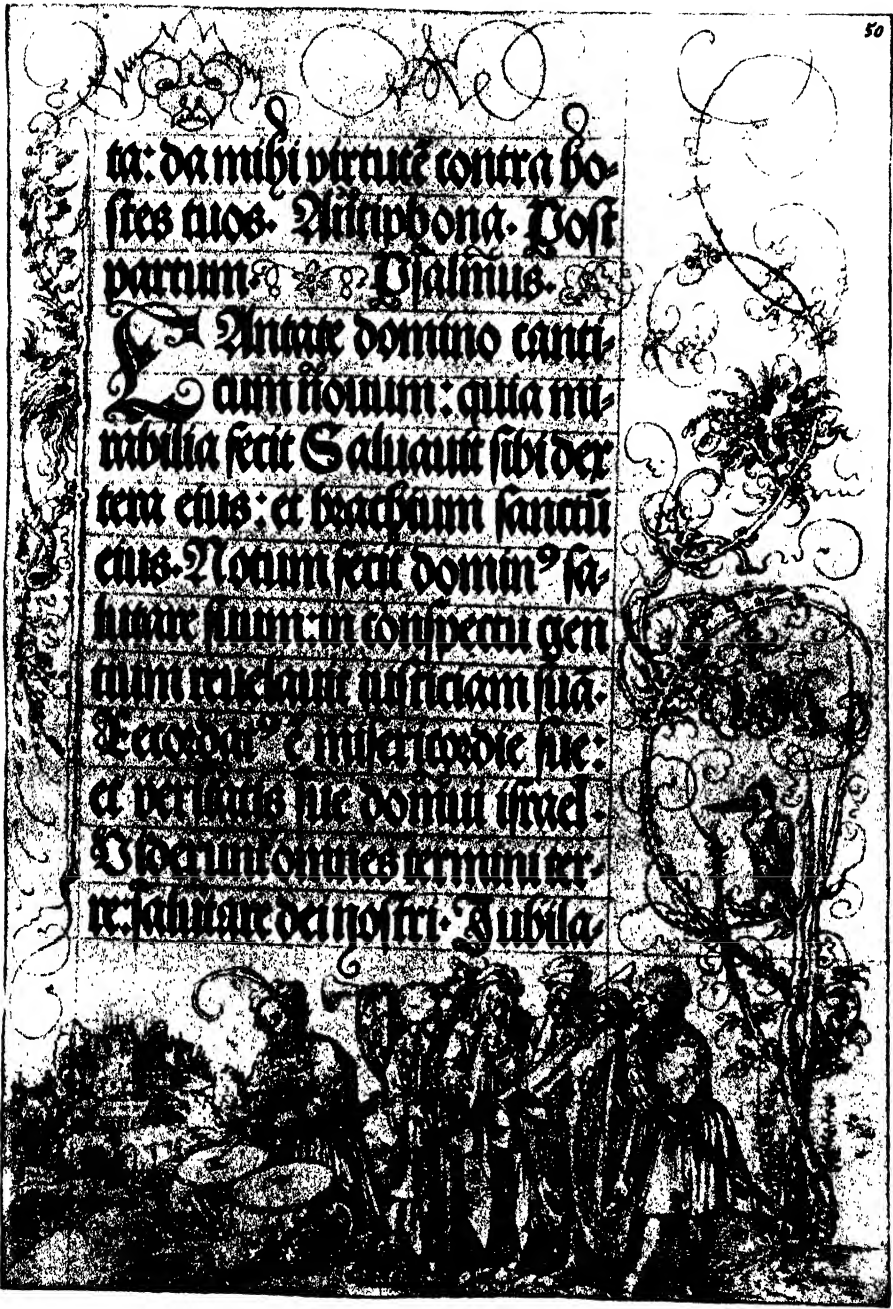 50
ta: da mihi virtutē contra ho-
stes tuos. Antiphona. Post
partum. Psalmus.
CAntate domino canti-
cum nouum: quia mi-
rabilia fecit Saluauit sibi dex
tera eius: et brachium sanctū
eius. Notum fecit dominꝰ sa-
lutare suum: in conspectu gen
tium reuelauit iusticiam suā.
Recordatꝰ ē misericordie sue:
et veritatis sue domui israel.
Viderunt omnes termini ter-
re: salutare dei nostri. Jubila-